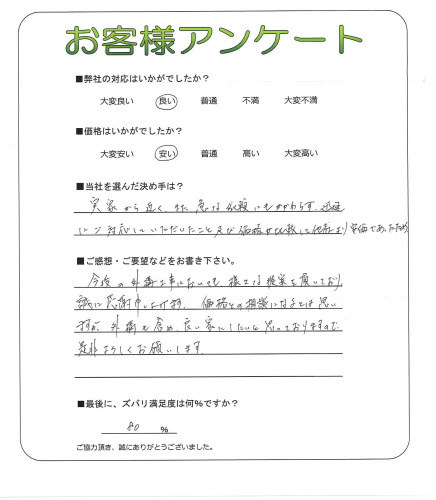 お客様アンケート
■弊社の対応はいかがでしたか？
大変良い 良い 普通 不満 大変不満
■価格はいかがでしたか？
大変安い 安い 普通 高い 大変高い
■当社を選んだ決め手は？
実家から近く、また急な依頼にもかかわらず、迅速
に対応していただいたこと及び価格が比較して他社より安価であったため
■ご感想・ご要望などをお書き下さい。
今後の外構工事においても様々な提案を頂いており
誠に感謝申し上げます。価格との相談になるとは思い
ますが、外構も含め、良い家にしたいと思っておりますので
是非よろしくお願いします。
■最後に、ズバリ満足度は何%ですか？
80 %
ご協力頂き、誠にありがとうございました。